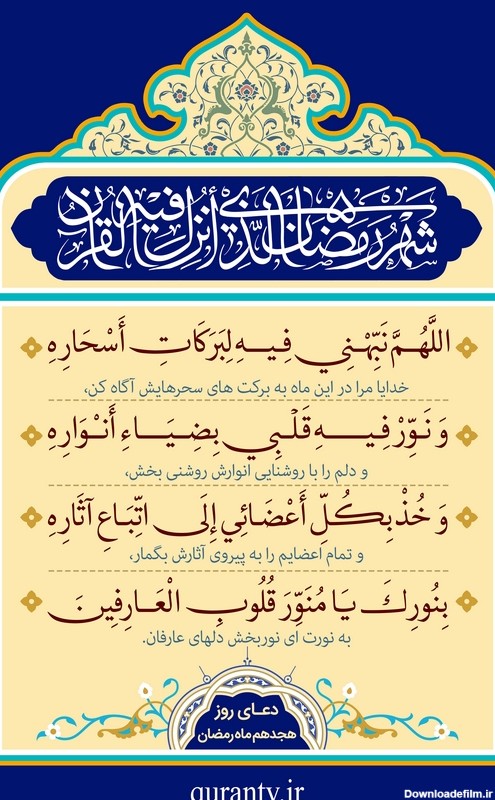 شَهْرُ رَمَضَانَ الَّذِي أُنْزِلَ فِيهِ الْقُرْآنُ
اللَّهُمَّ نَبِّهْنِي فِيهِ لِبَرَكَاتِ أَسْحَارِهِ
خدایا مرا در این ماه به برکت های سحرهایش آگاه کن،
وَ نَوِّرْ فِيهِ قَلْبِي بِضِيَاءِ أَنْوَارِهِ
و دلم را با روشنایی انوارش روشنی بخش،
وَ خُذْ بِكُلِّ أَعْضَائِي إِلَى اتِّبَاعِ آثَارِهِ
و تمام اعضایم را به پیروی آثارش بگمار،
بِنُورِكَ يَا مُنَوِّرَ قُلُوبِ الْعَارِفِينَ
به نورت ای نوربخش دلهای عارفان.
دعای روز
هجدهم ماه رمضان
qurantv.ir
Downloadefilm.ir